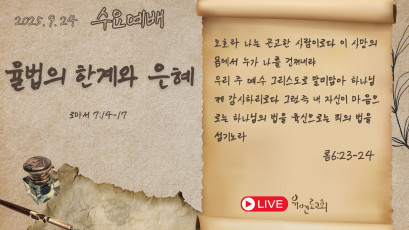 2025. 9. 24 수요예배
율법의 한계와 은혜
로마서 7:14-17
오호라 나는 곤고한 사람이로다 이 사망의
몸에서 누가 나를 건져내랴
우리 주 예수 그리스도로 말미암아 하나님
께 감사하리로다 그런즉 내 자신이 마음으
로는 하나님의 법을 육신으로는 죄의 법을
섬기노라
롬6:23-24
LIVE